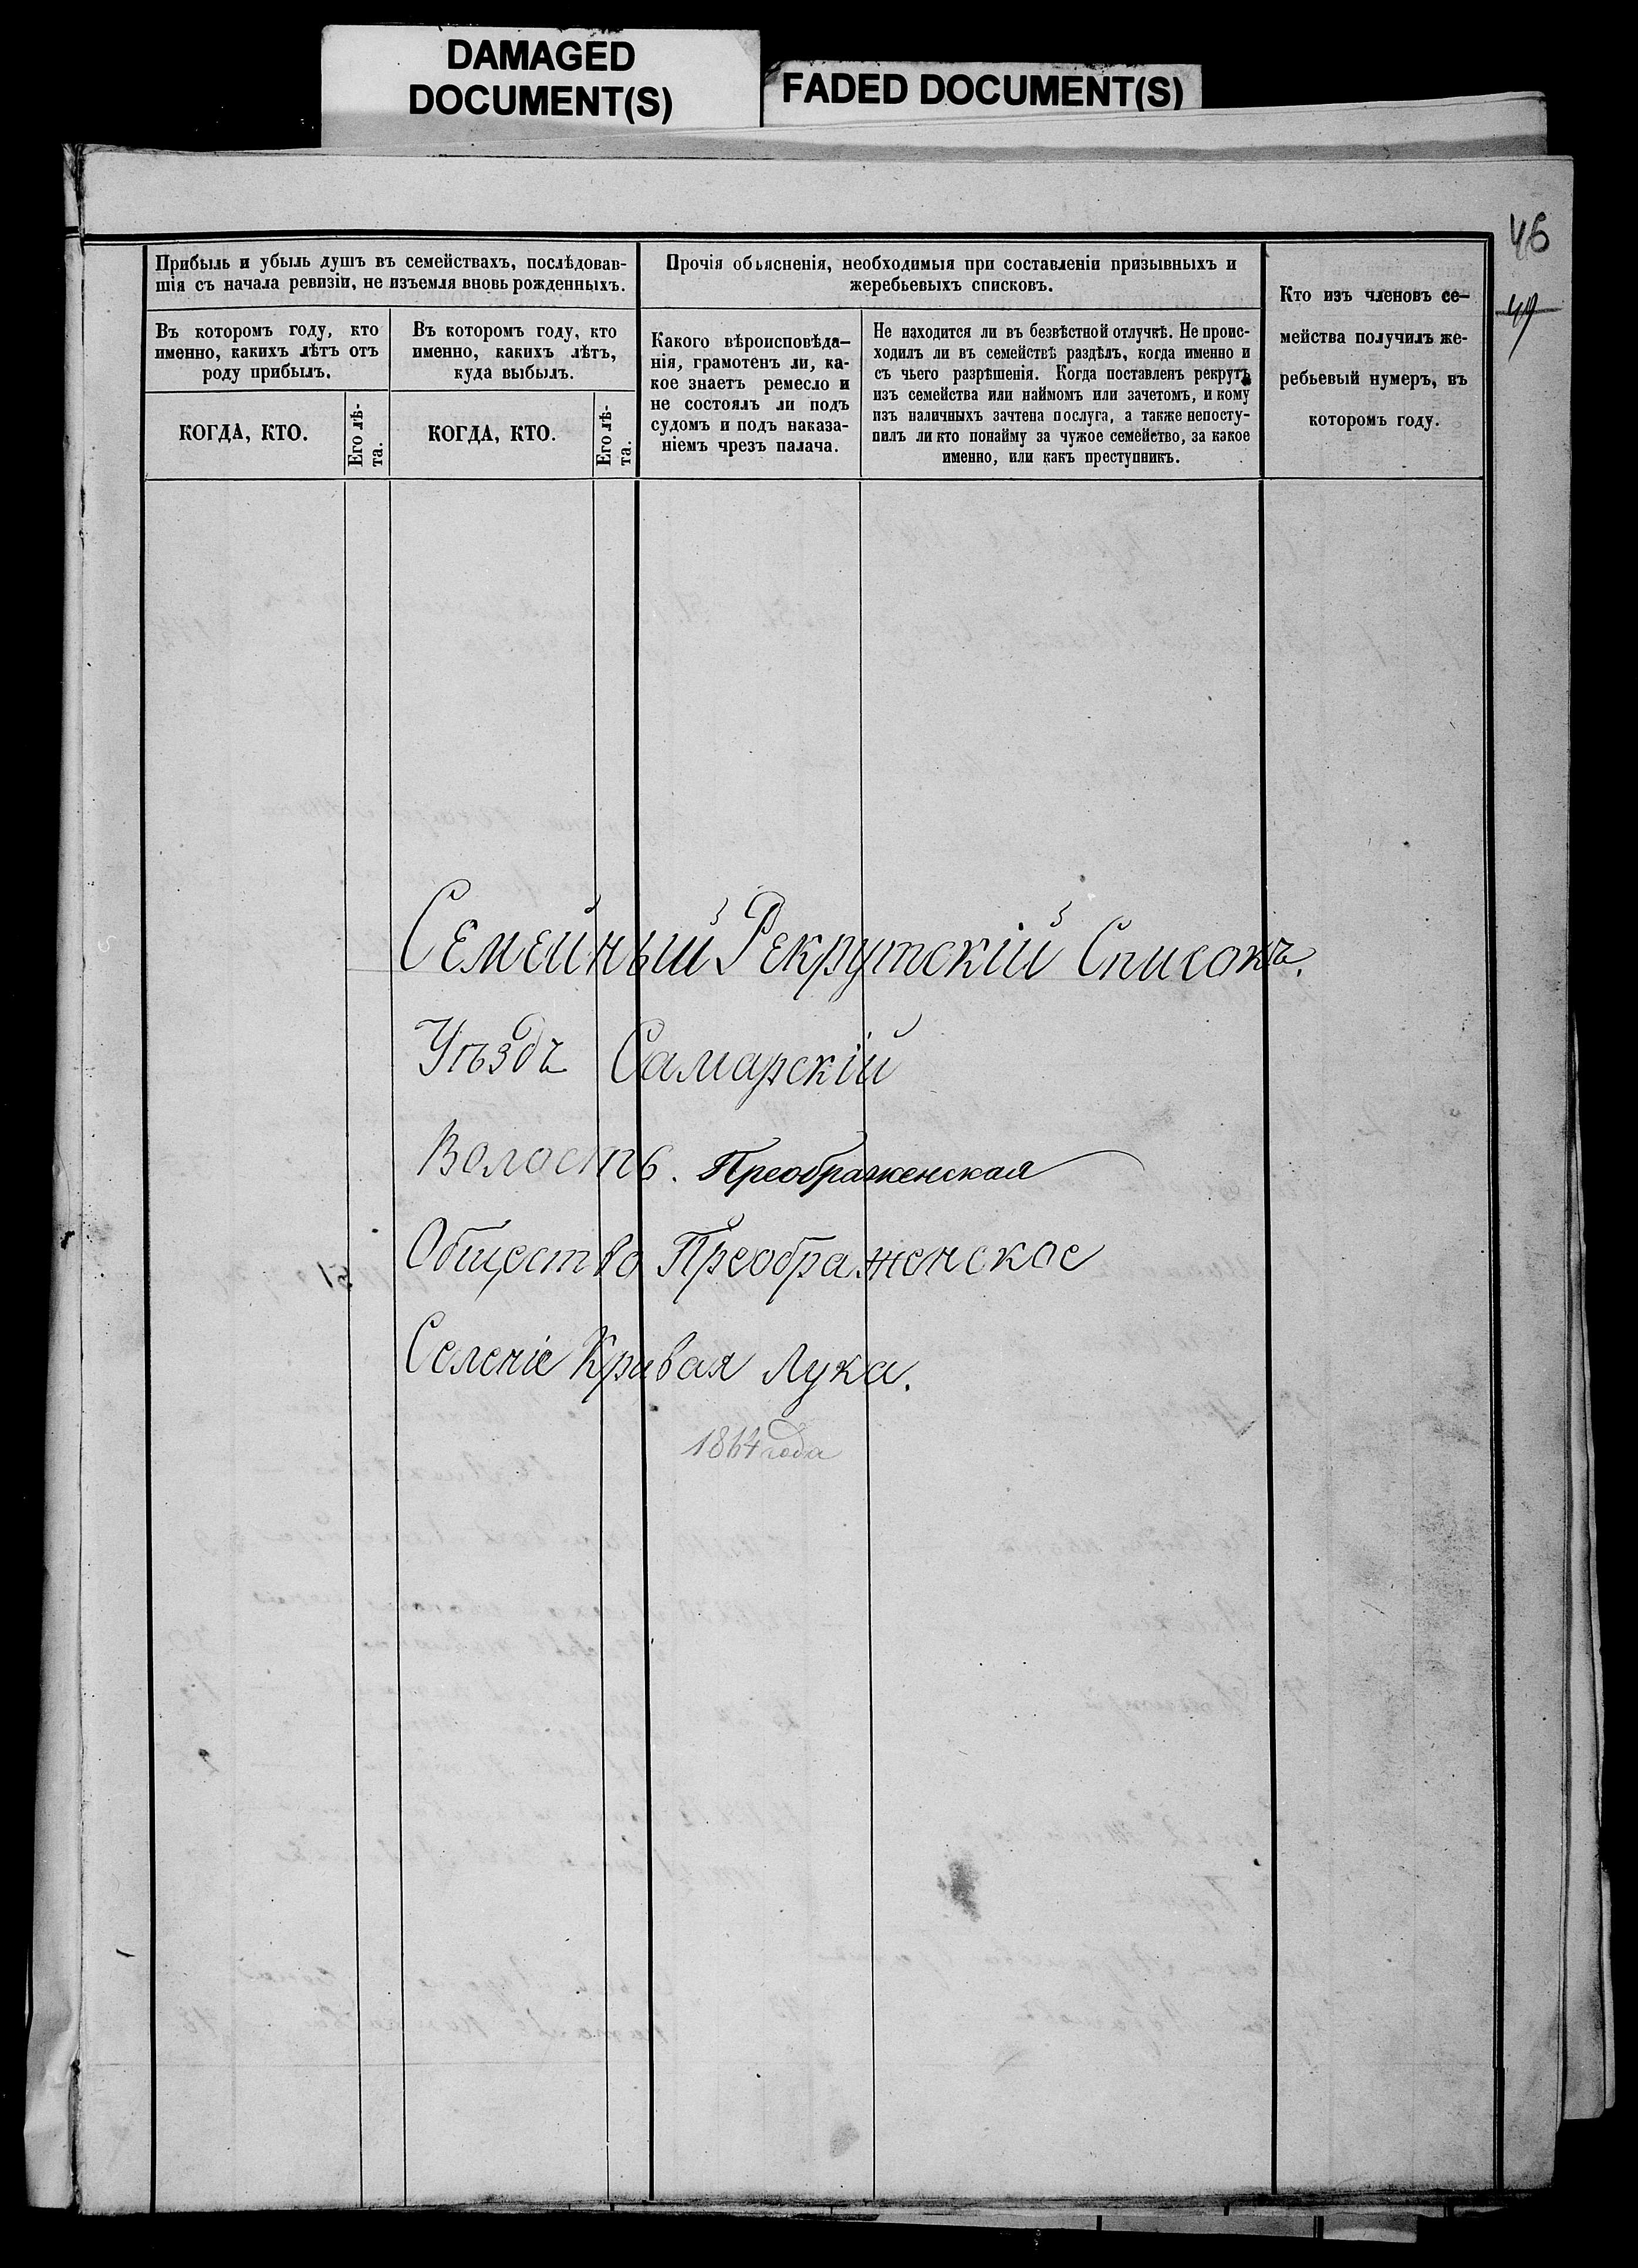 DAMAGED
DOCUMENT(S)
FADED DOCUMENT(S)
46
49
Прибыль и убыль душъ въ семействахъ, послѣдовав-
шія съ начала ревизіи, не изъемля вновь рожденныхъ.
Въ которомъ году, кто
именно, какихъ лѣтъ отъ
роду прибылъ.
КОГДА, КТО.
Его лѣ-
та.
Въ которомъ году, кто
именно, какихъ лѣтъ,
куда выбылъ.
КОГДА, КТО.
Его лѣ-
та.
Прочія объясненія, необходимыя при составленіи призывныхъ и
жеребьевыхъ списковъ.
Какого вѣроисповѣда-
нія, грамотенъ ли, ка-
кое знаетъ ремесло и
не состоялъ ли подъ
судомъ и подъ наказа-
ніемъ чрезъ палача.
Не находится ли въ безвѣстной отлучкѣ. Не проис-
ходилъ ли въ семействѣ раздѣлъ, когда именно и
съ чьего разрѣшенія. Когда поставленъ рекрутъ
изъ семейства или наймомъ или зачетомъ, и кому
изъ наличныхъ зачтена послуга, а также непосту-
пилъ ли кто понайму за чужое семейство, за какое
именно, или какъ преступникъ.
Кто изъ членовъ се-
мейства получилъ же-
ребьевый нумеръ, въ
которомъ году.
Семейный Рекрутскій Списокъ.
Уѣздъ Самарскій
Волость. Преображенская
Общество Преображенское
Селеніе Кривая Лука.
1864 года